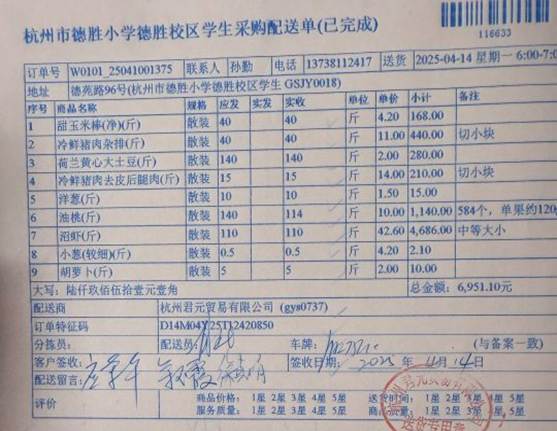 杭州市德胜小学德胜校区学生采购配送单(已完成)
116633
订单号 W0101_25041001375 联系人 孙勤 电话 13738112417 送货 2025-04-14 星期一 6:00-7:0
地址 德苑路96号(杭州市德胜小学德胜校区学生 GSJY0018)
序号 商品名称 规格 应发 实发 实收 单位 单价 小计 备注
1 甜玉米棒(净)(斤) 散装 40 40 斤 4.20 168.00
2 冷鲜猪肉杂排(斤) 散装 40 40 斤 11.00 440.00 切小块
3 荷兰黄心大土豆(斤) 散装 140 140 斤 2.00 280.00
4 冷鲜猪肉去皮后腿肉(斤) 散装 15 15 斤 14.00 210.00 切小块
5 洋葱(斤) 散装 10 10 斤 1.50 15.00
6 油桃(斤) 散装 140 114 斤 10.00 1,140.00 584个，单果约120
7 沼虾(斤) 散装 110 110 斤 42.60 4,686.00 中等大小
8 小葱(较细)(斤) 散装 0.5 0.5 斤 4.20 2.10
9 胡萝卜(斤) 散装 5 5 斤 2.00 10.00
大写: 陆仟玖佰伍拾壹元壹角 总金额: 6,951.10元
配送商 杭州君元贸易有限公司 (gys0737)
订单特征码 D14M04Y25T12420850
分拣员: 配送员: 车牌: (与备案一致)
客户签收: 签收日期: 2025 年 4月 14日
配送留言:
评价 商品价格: 1星 2星 3星 4星 5星 送货时间: 1星 2星 3星 4星 5星
服务质量: 1星 2星 3星 4星 5星 商品质量: 1星 2星 3星 4星 5星
送货专用章